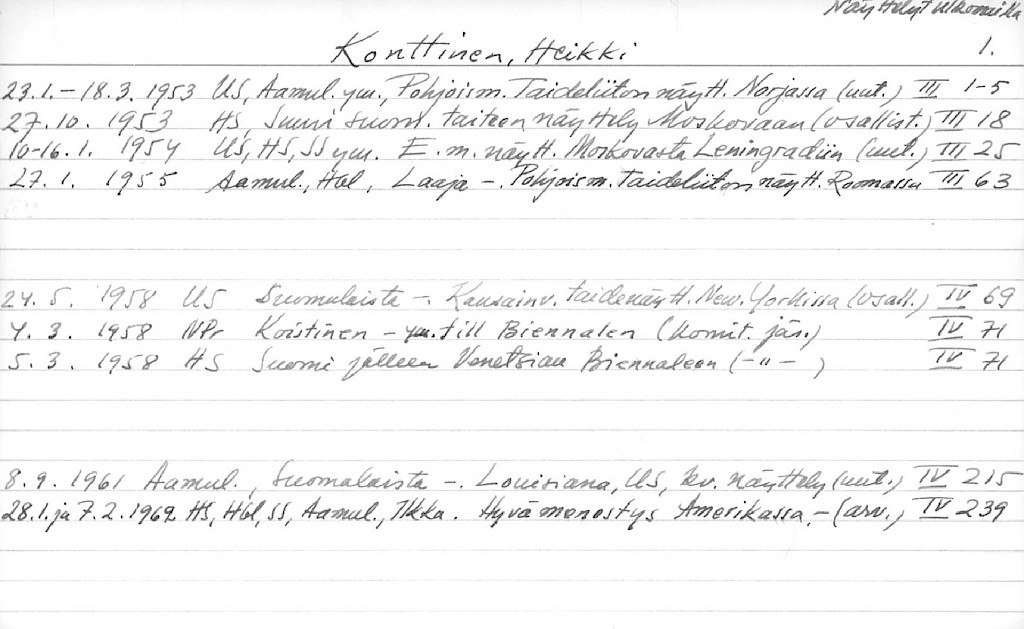 Näyttelyt ulkomailla
Konttinen, Heikki 1.
23.1.-18.3. 1953 US, Aamul. ym., Pohjoism. Taideliiton näytt. Norjassa (uut.) III 1-5
27.10. 1953 HS, Suuri suom. taiteen näyttely Moskovaan (osallist.) III 18
10-16.1. 1954 US, HS, SS ym. E.m. näytt. Moskovasta Leningradiin (uut.) III 25
27.1. 1955 Aamul., Hbl, Laaja -. Pohjoism. Taideliiton näytt. Roomassa III 63
24.5. 1958 US Suomalaista -. Kansainv. taidenäytt. New. Yorkissa (osall.) IV 69
4.3. 1958 NPr Koistinen - ym. till Biennalen (Komit. jäs.) IV 71
5.3. 1958 HS Suomi jälleen Venetsian Biennaleen (-"- ) IV 71
8.9. 1961 Aamul., Suomalaista -. Louisiana, US, kv. näyttely (uut.) IV 215
28.1. ja 7.2. 1962 HS, Hbl, SS, Aamul., Ilkka. Hyvä menestys Amerikassa, - (arv.) IV 239